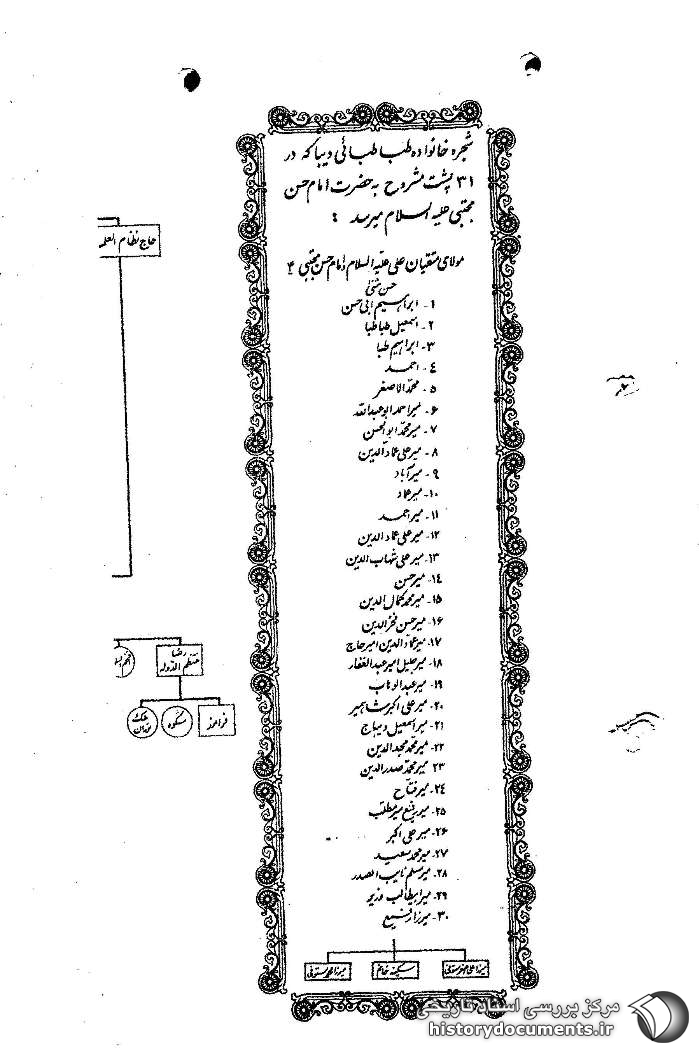 شجره خانواده طباطبائی دیبا که در
۳۱ پشت مشروح به حضرت امام حسن
مجتبی علیه السلام میرسد :
مولای متقیان علی علیه السلام امام حسن مجتبی ۴
حسن مثنی
۱- ابراهیم ابی حسن
۲- اسمعیل طباطبا
۳- ابراهیم طبا
٤- احمد
۵- محمد الاصغر
۶- میر احمد ابوعبدالله
۷- میر محمد ابوالحسن
۸- میر علی عمادالدین
۹- میرآباد
۱۰- میرعماد
۱۱- میر احمد
۱۲- میر علی عمادالدین
۱۳- میر علی شهاب الدین
۱٤- میر حسن
۱۵- میر محمد کمال الدین
۱۶- میر حسن فخرالدین
۱۷- میر عمادالدین امیر حاج
۱۸- میر جلیل امیر عبدالغفار
۱۹- میر عبدالوهاب
۲۰- میر علی اکبر شاهمیر
۲۱- میر اسمعیل دیباج
۲۲- میر محمد مجدالدین
۲۳- میر محمد صدرالدین
۲٤- میر فتاح
۲۵- میر رفیع میر مطلب
۲۶- میر علی اکبر
۲۷- میر محمد سعید
۲۸- میر سلم نایب الصدر
۲۹- میر ابیطالب وزیر
۳۰- میرزا رفیع
میرزا علی اصغر مستوفی
سکینه خانم
میرزا محمد مستوفی
حاج نظام العلم
رضا
منتظم الدوله
فرامرز
شکوه
مرکز بررسی اسناد تاریخی
historydocuments.ir